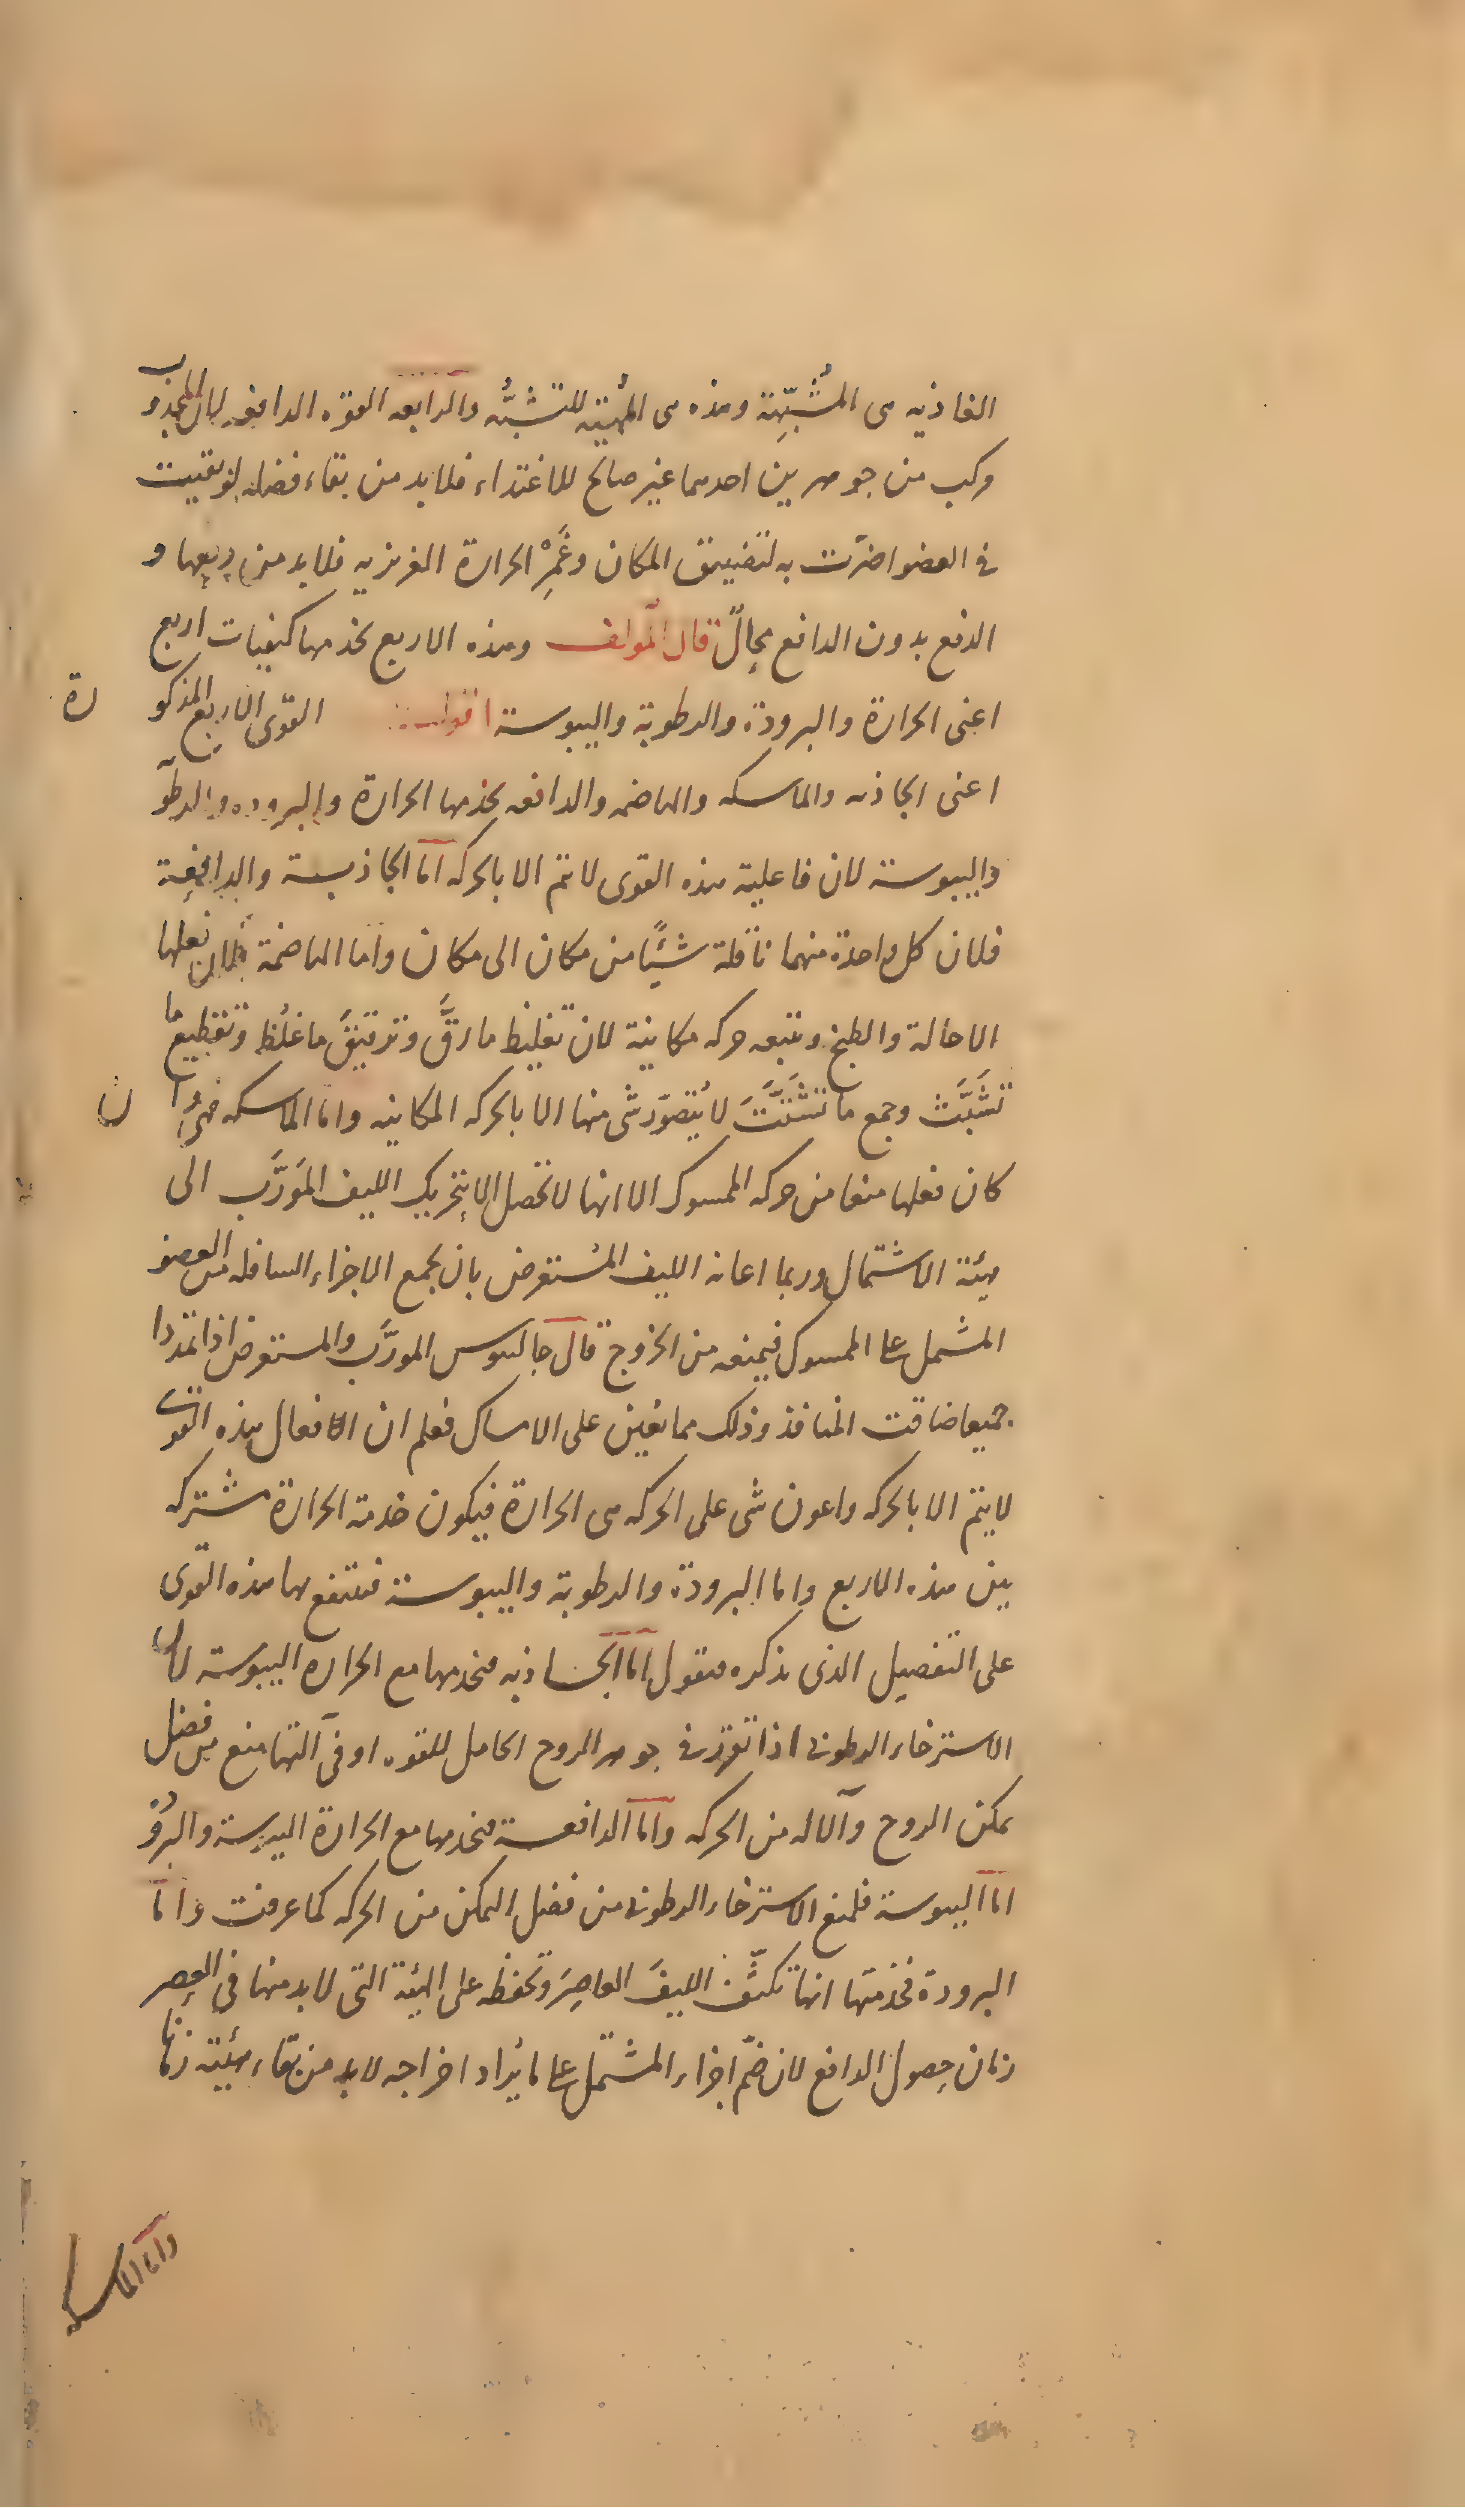 الغاذيه هى المُشَبِّهة وهذه هى المُهيّئه للتشبُّه والرابعه القوّه الدافعه لان المجذوب
مركب من جوهرين احدهما غير صالح للاغتذاء فلابد من بقاء فضله لو بقيت
فى العضو اضرّت به لتضييق المكان وغَمِّرْ الحرارة الغريزيه فلابد من دفعها و
الدفع بدون الدافع محالٌ قال المؤلف وهذه الاربع تخدمها كيفيات اربع
اعنى الحرارة والبرودة والرطوبة واليبوسة اقول القوى الاربع المذكورة
اعنى الجاذبه والماسكه والهاضمه والدافعه تخدمها الحرارة والبروده والرطوبة
واليبوسة لان فاعلية هذه القوى لا تتم الا بالحركه امّا الجاذبة والدافعة
فلان كل واحدة منهما ناقلة شيئًا من مكان الى مكان واما الهاضمة فلان فعلها
الاحالة والطبخ وتتبعه حركه مكانية لان تغليظ ما رقَّ وترقيقَ ما غلُظ وتقطيع ما
تشَبَّث وجمع ما تشَتَّتَ لا يُتصوّر شى منها الا بالحركه المكانيه واما الماسكه فهى وان
كان فعلها منعا من حركه الممسوك الا انها لا تحصل الا بتحريك الليف المَورَّب الى
هيئة الاشتمال وربما اعانه الليف المُستعرض بان يجمع الاجزاء السافله من العضو
المشتمل على الممسوك فيمنعه من الخروج قال جالينوس المورَّب والمستعرض اذا تمددا
جميعا ضاقت المنافذ وذلك مما يعين على الامساك فعلم ان الافعال هذه القوى
لا يتم الا بالحركه واعون شى على الحركه هى الحرارة فيكون خدمة الحرارة مشتركه
بين هذه الاربع واما البرودة والرطوبة واليبوسة فتنتفع بها هذه القوى
على التفصيل الذى نذكره فنقول امّا الجاذبه فتخدمها مع الحراره اليبوسته لان
الاسترخاء الرطوبى اذا تقرّر فى جوهر الروح الحامل للقوه او فى آلتها منع من فضل
تمكن الروح وآلاله من الحركه وامّا الدافعة فتخدمها مع الحرارة اليبوسة والبرودة
امّا اليبوسة فلمنع الاسترخاء الرطوبى من فضل التمكن من الحركه كما عرفت وامّا
البرودة فخدمتها انها تكثّف الليفَ العاصِرَ وتحفظه على الهيئة التى لابد منها فى العصر
زمان حصول الدافع لان ضمّ اجزاء المشتمل على ما يُراد اخراجه لابد من بقاء هيئته زمانا
واما الماسكه